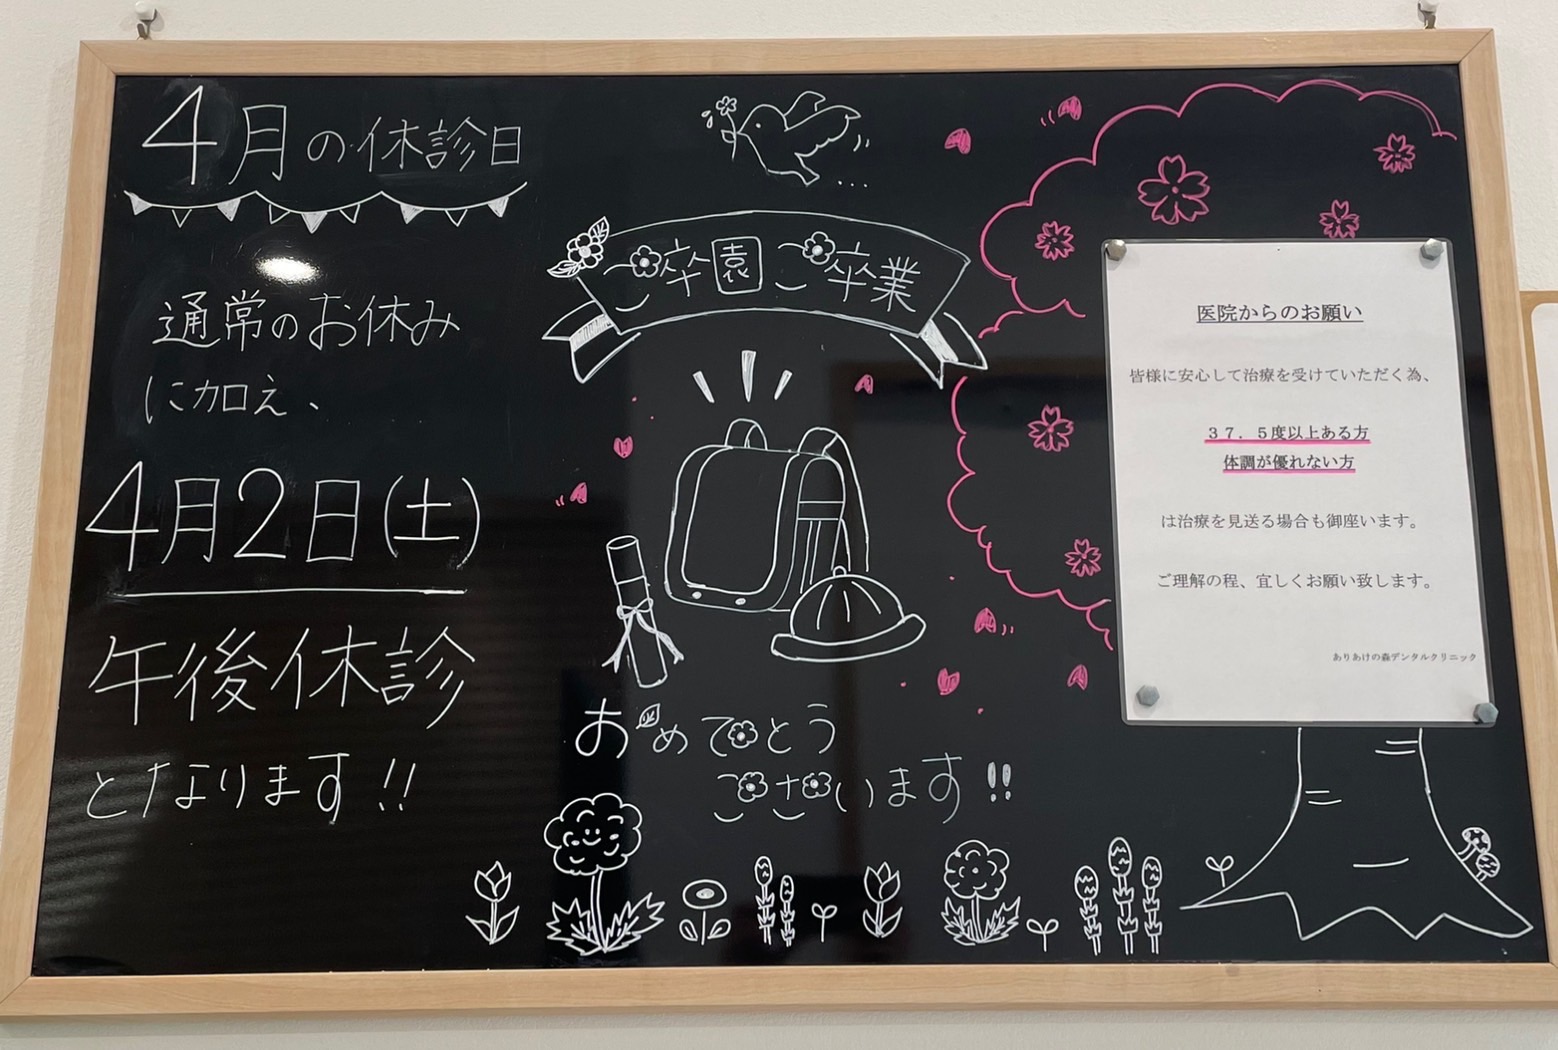 4月の休診日
通常のお休み
に加え、
4月2日(土)
午後休診
となります!!
ご卒園ご卒業
おめでとう
ございます!!
医院からのお願い
皆様に安心して治療を受けていただく為、
３７．５度以上ある方
体調が優れない方
は治療を見送る場合も御座います。
ご理解の程、宜しくお願い致します。
ありあけの森デンタルクリニック